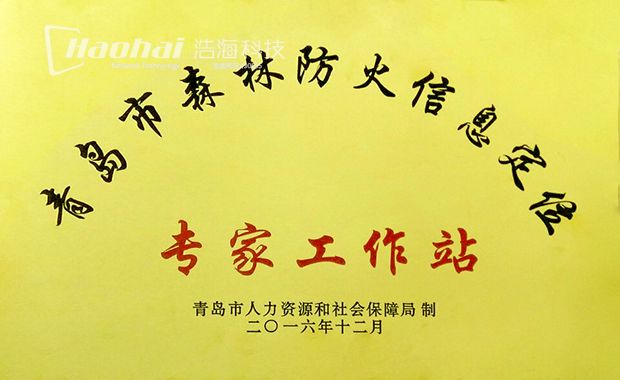 Haohai 浩海科技
青岛市森林防火信息定位
专家工作站
青岛市人力资源和社会保障局 制
二〇一六年十二月